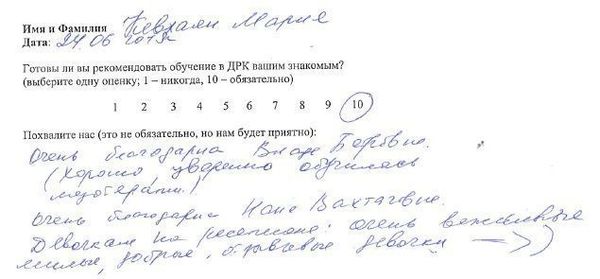 Имя и Фамилия Кевхаян Мария
Дата: 24 06 2015г
Готовы ли вы рекомендовать обучение в ДРК вашим знакомым?
(выберите одну оценку; 1 – никогда, 10 – обязательно)
1 2 3 4 5 6 7 8 9 10
Похвалите нас (это не обязательно, но нам будет приятно):
Очень благодарна Владе
(Хорошо, уверенно обучилась
мезотерапии.)
Очень благодарна Нане Вахтаговне.
Девочкам на ресепшене: очень вежливые
милые, добрые, отзывчивые девочки :)